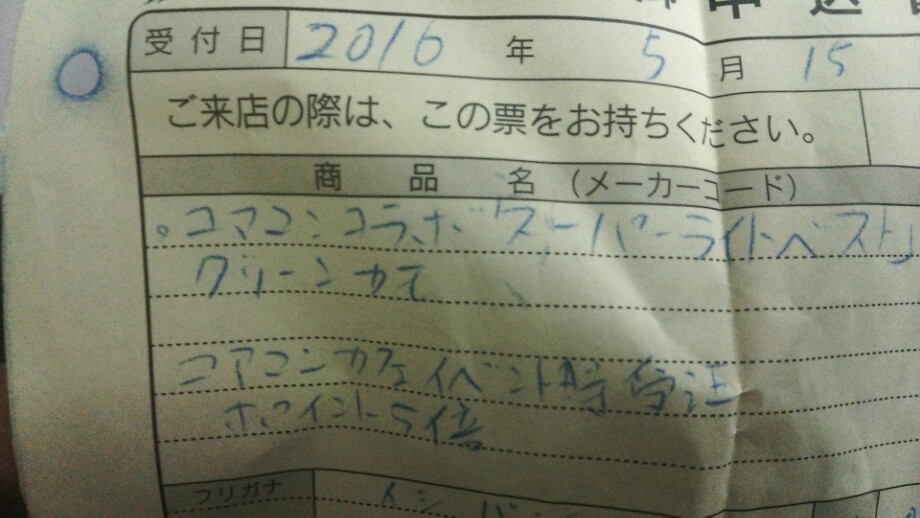 申込
受付日 2016 年 5月 15
ご来店の際は、この票をお持ちください。
商品名（メーカーコード）
。コマコンコラボ「スーパーライトベスト」
グリーンカモ
コアコンカフェイベント時受注
ポイント5倍
フリガナ